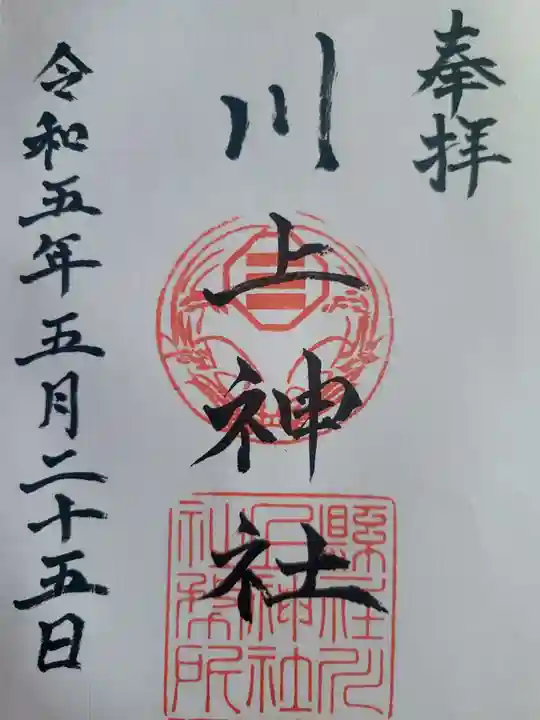 奉拝
川上神社
縣社川
上神社
社務所
令和五年五月二十五日